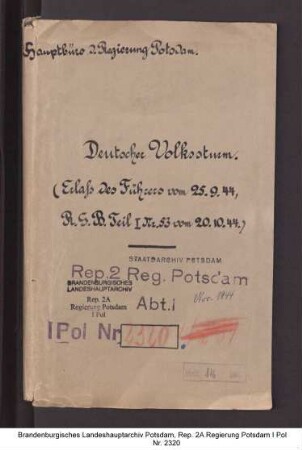 Hauptbüro d. Regierung Potsdam.
Deutscher Volkssturm.
(Erlaß des Führers vom 25.9.44,
R.G.B. Teil I Nr. 53 vom 20.10.44.)
STAATSARCHIV POTSDAM
Rep. 2 Reg. Potsdam
BRANDENBURGISCHES
LANDESHAUPTARCHIV
Rep. 2A
Regierung Potsdam
I Pol
Abt. I
Nov. 1944
I Pol Nr. 2320
Brandenburgisches Landeshauptarchiv Potsdam, Rep. 2A Regierung Potsdam I Pol
Nr. 2320